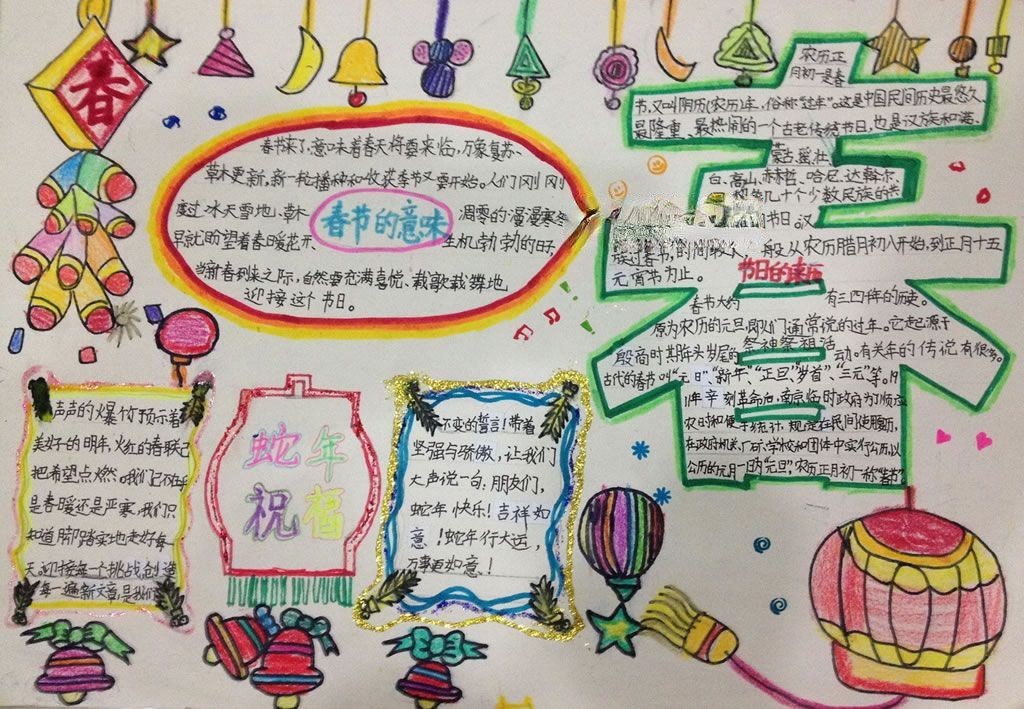 春
春节来了,意味着春天将要来临,万象复苏、
草木更新,新一轮播种和收获季节又要开始。人们刚刚
度过冰天雪地、草木
春节的意味
凋零的漫漫寒冬
早就盼望着春暖花开、
生机勃勃的日子,
当新春到来之际,自然要充满喜悦、载歌载舞地
迎接这个节日。
农历正
月初一是春
节,又叫阴历(农历)年,俗称“过年”。这是中国民间历史最悠久、
最隆重、最热闹的一个古老传统节日,也是汉族和满、
蒙古、瑶、壮、
白、高山、赫哲、哈尼、达斡尔、
几十个少数民族的共
节日。汉
族过春节,的时间
般从农历腊月初八开始,到正月十五
元宵节为止。
节日的来历
春节大约
有三四年的历史。
原为农历的元旦,即人们通常说的过年。它起源于
殷商时期年头岁尾的祭神祭祖活动。有关年的传说有很多。
古代的春节叫“元日”、“新年”、“正旦”、“岁首”、“三元”等,19
11年辛刻革命后,南京临时政府为了顺应
农时和便于统计,规定在民间使用夏历,
在政府机关、厂矿、学校和团体中实行公历,以
公历的元月一日为“元旦”,农历正月初一称“春节”
声声的爆竹预示着
美好的明年,火红的春联
把希望点燃。我们不在乎
是春暖还是严寒,我们只
知道脚踏实地走好每一
天,迎接每一个挑战,创造
每一遍新文章,是我们
蛇年
祝福
不变的誓言!带着
坚强与骄傲,让我们
大声说一句:朋友们,
蛇年快乐!吉祥如
意!蛇年行大运,
万事更如意!